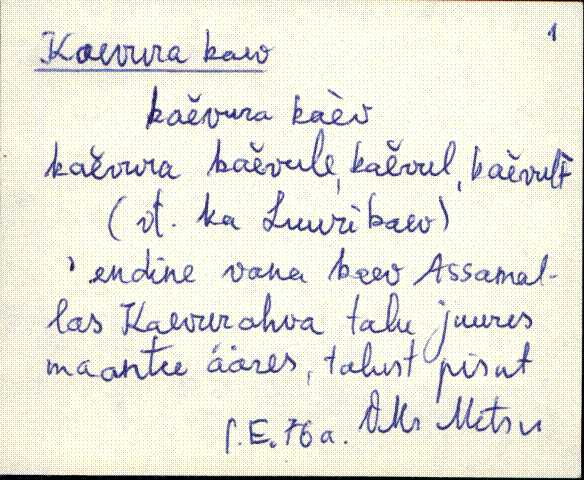 1
Kaevura kaev
kaĕvura kaèv
kaĕvura kaĕvule, kaĕvul, kaĕvult
(vt. ka Luuri kaev)
endine vana kaev Assamal-
las Kaevurahva talu juures
maantee ääres, talust pisut
E. 76 a. Metsu